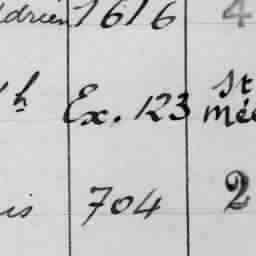 drien 1616 4
h Ex. 123 St
Mée
is 704 2